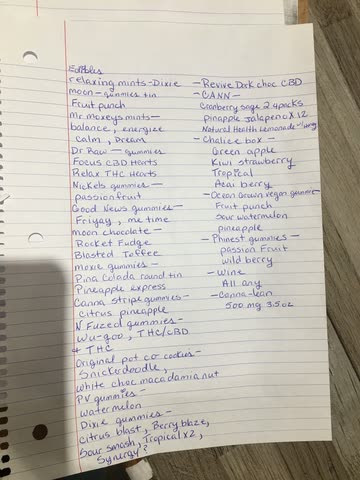 Edibles
relaxing mints - Dixie
moon - gummies tin
Fruit punch
Mr. moxeys mints -
balance, energize
calm, Dream
Dr Raw - gummies
Focus CBD Hearts
Relax THC Hearts
Nickels gummies -
passionfruit
Good News gummies -
Friyay, me time
moon chocolate -
Rocket Fudge
Blasted Toffee
moxie gummies -
Pina Colada round tin
Pineapple express
Canna stripe gummies -
citrus pineapple
N.Fuzed gummies -
Wu-goo, THC/CBD
+ THC
Original pot co. cookies -
Snickerdoodle,
white choc macadamia nut
PV gummies -
watermelon
Dixie gummies -
citrus blast, Berry blaze,
Sour smash, Tropical x2,
Synergy?
- Revive Dark choc CBD
- CANN -
Cranberry sage 2 4packs
pinapple Jalapeno X 12
Natural Health Lemonade -
- Chalice box -
Green apple
Kiwi strawberry
Tropical
Acai berry
- Ocean Grown vegan gummie -
Fruit punch
Sour watermelon
pineapple
- Phinest gummies -
passion Fruit
wild berry
- Wine
All any
- Canna-lean
500 mg 3.5 oz